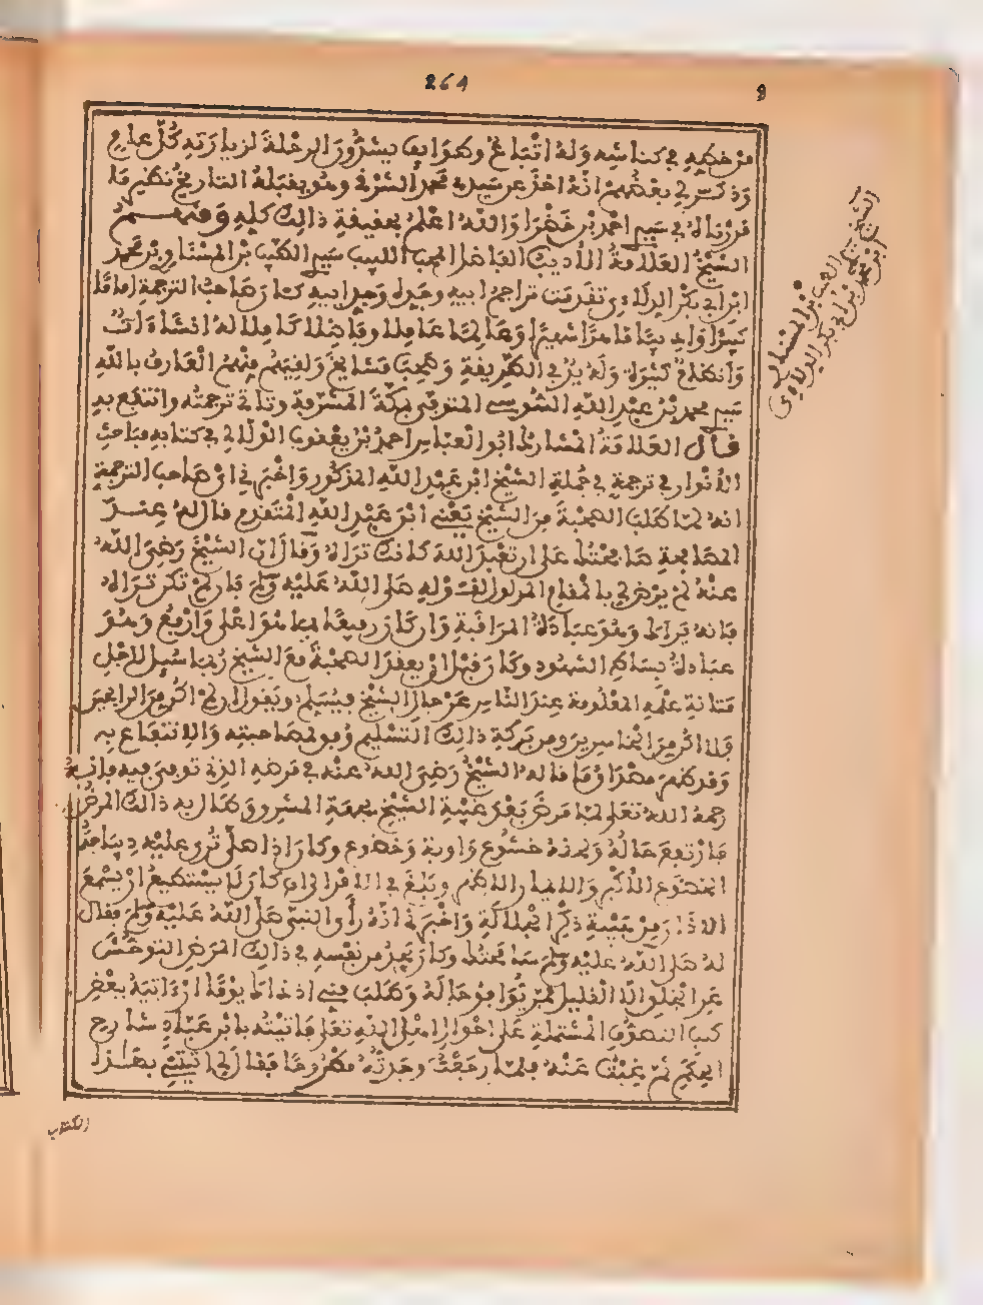 264
8
من خطه في كناشه وله اتباع وطوايف يشدون الرحلة لزيارته كل عام
وذكر لي بعضهم انه اخذ عن سيدي محمد الشرفي وهو يقبله التاريخ نظير ما
قررناه في سيدي احمد بن خضرا والله اعلم بحقيقة ذالك كله ومنهم
الشيخ العلامة الاديب الفاضل المحب اللبيب سيدي الطيب بن المسناوي بن محمد
ابن ابي بكر الدلاءي تقدمت تراجم ابيه وجده وجد ابيه كان صاحب الترجمة اماما
كبيرا واديبا ماهرا شهيرا وعالما عاملا وفاضلا كاملا له انشاءات
وانظام كثيرة وله يد في الطريقة وصحب مشايخ ولقيهم منهم العارف بالله
سيدي محمد بن عبد الله السوسي المتوفى بمكة المشرفة وتاتي ترجمته وانتفع به
قال العلامة المشارك ابو العباس احمد بن يعقوب الولالي في كتابه مباحث
الانوار في ترجمة في جملة الشيخ ابن عبد الله المذكور واخبرني اي صاحب الترجمة
انه لما طلب الصحبة من الشيخ يعني ابن عبد الله المتقدم قال له عند
المصافحة صافحتك على ان تعبد الله كانك تراه وقال ان الشيخ رضي الله
عنه لم يرض لي بالمقام المدلول لقوله صلى الله عليه وسلم فان لم تكن تراه
فانه يراك وهو عبادة المراقبة وان كان رفيعا لما هو اعلى وارفع وهو
عبادة بساط الشهود وكان قبل ان يعقد الصحبة مع الشيخ ربما سيل لاجل
متانة علمه المعلومة عند الناس عن حال الشيخ فيسلم ويقول ان لم اكن من الرابحين
فلا اكن من الخاسرين ومن بركة ذالك التسليم وفق لمصاحبته والانتفاع به
وقد ظهر مصداق ما قاله الشيخ رضي الله عنه في مرضه الذي توفي فيه فانه
رحمه الله تعلى لما مرض بعد غيبة الشيخ بجهة المشرق وطال به ذالك المرض
فارتفع حاله واخذه خشوع واوبة وخضوع وكان اذا صلى تروا عليه
الخضوع الاكبر والانهيار الاظهر ويبلغ في الافراد ان كان لا يستطيع ان يسمع
الاذان من هيبة ذكر الجلالة واخبرني انه رأى النبي صلى الله عليه وسلم فقال
له صلى الله عليه وسلم سامحتك وكان يجد من نفسه في ذالك المرض التوحش
عن الخلق الا القليل ممن يوافق حاله وطلب مني اذ ذاك يوما ان اتيه ببعض
كتب التصوف المشتملة على احوال اهل الله تعلى فاتيته بابن عباد شارح
الحكم ثم غبت عنه فلما رجعت وجدته مطروحا فقال لي اتيتني بهذا
الكتاب
الشيخ سيدي الطيب بن المسناوي
ابن محمد بن ابي بكر الدلاوي